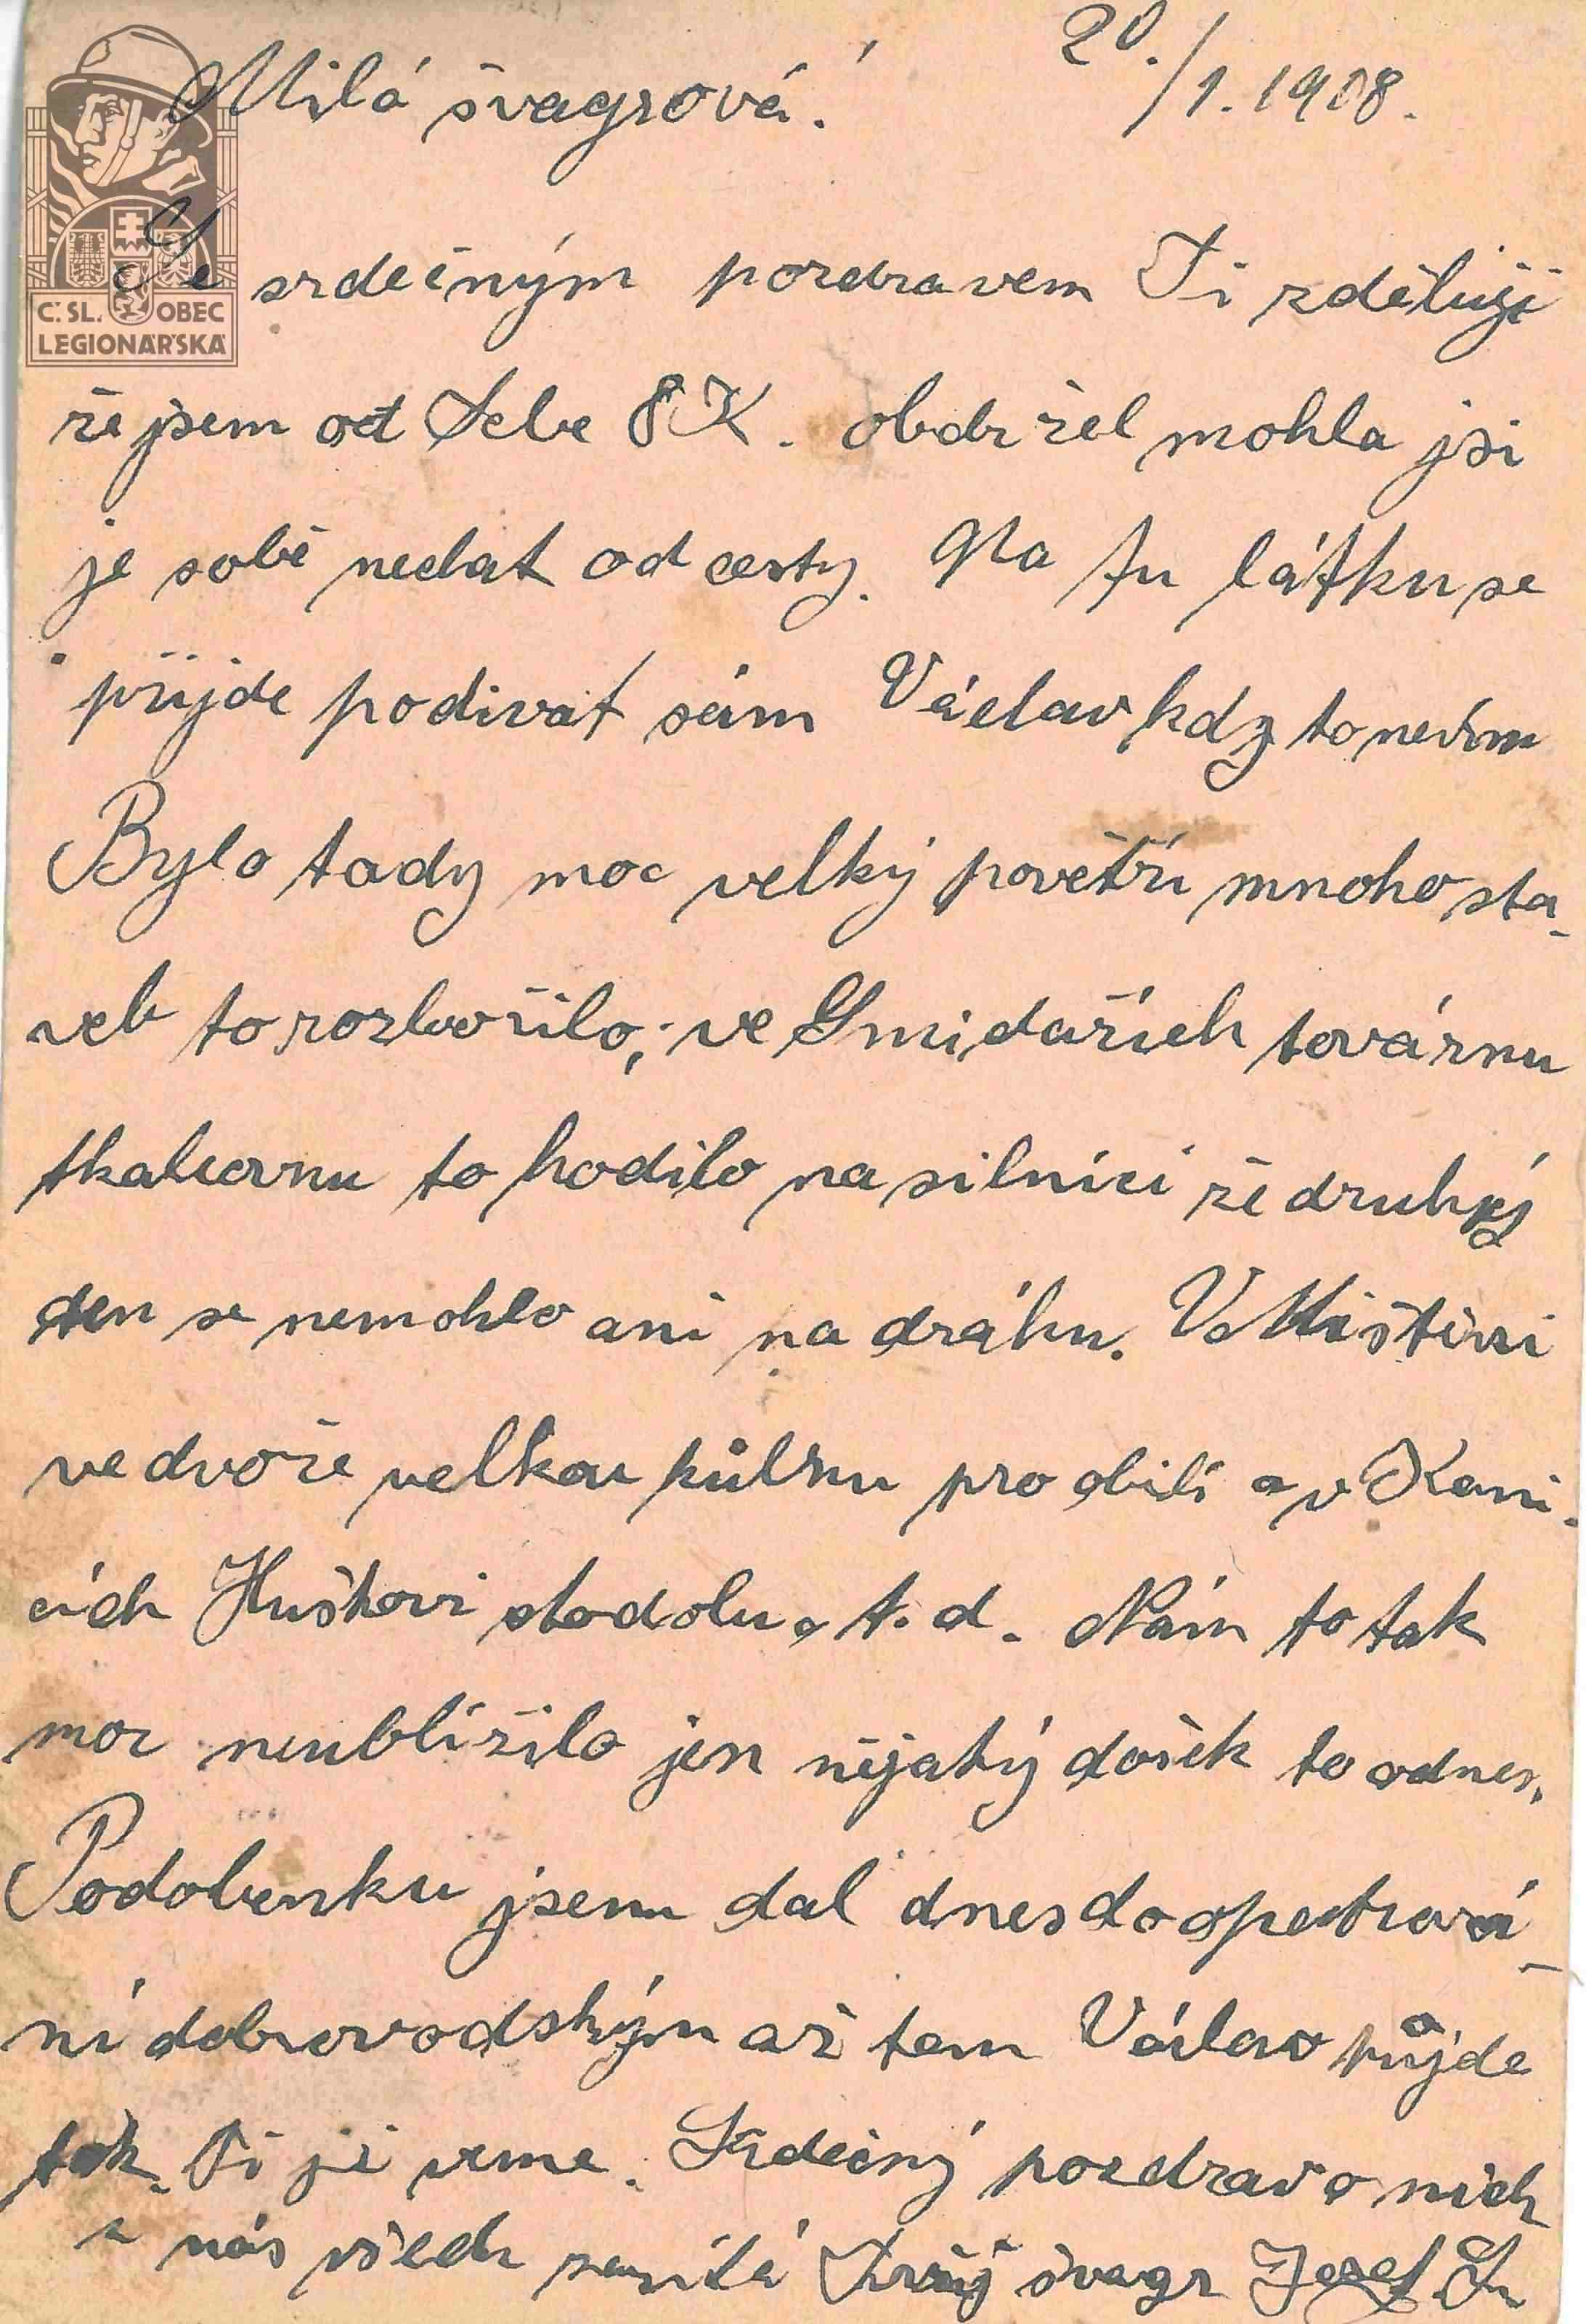 Milá švagrová!
20./1. 1908.
Č. SL. OBEC
LEGIONÁŘSKÁ
Se srdečným pozdravem Ti zděluji
že jsem od Tebe 8 K. obdržel mohla jsi
je sobě nechat od cesty. Na tu látku se
přijde podivat sám Václav kdy to nevím
Bylo tady moc velký povětří mnoho sta-
veb to rozbořilo, ve Smidařích továrnu
tkalcovnu to hodilo na silnici že druhký
den se nemohlo ani na dráhu. V Mištěvsi
ve dvoře velkou kůlnu pro obilí a v Kani-
cích Huškovi stodolu a t. d. Nám to tak
moc neublížilo jen nějaký došek to odnes.
Podobenku jsem dal dnes do opatrová-
ní dobrovodským až tam Václav půjde
tak Ti ji veme. Srdečný pozdrav o nich
a nás všech zasílá Tvůj švagr Josef